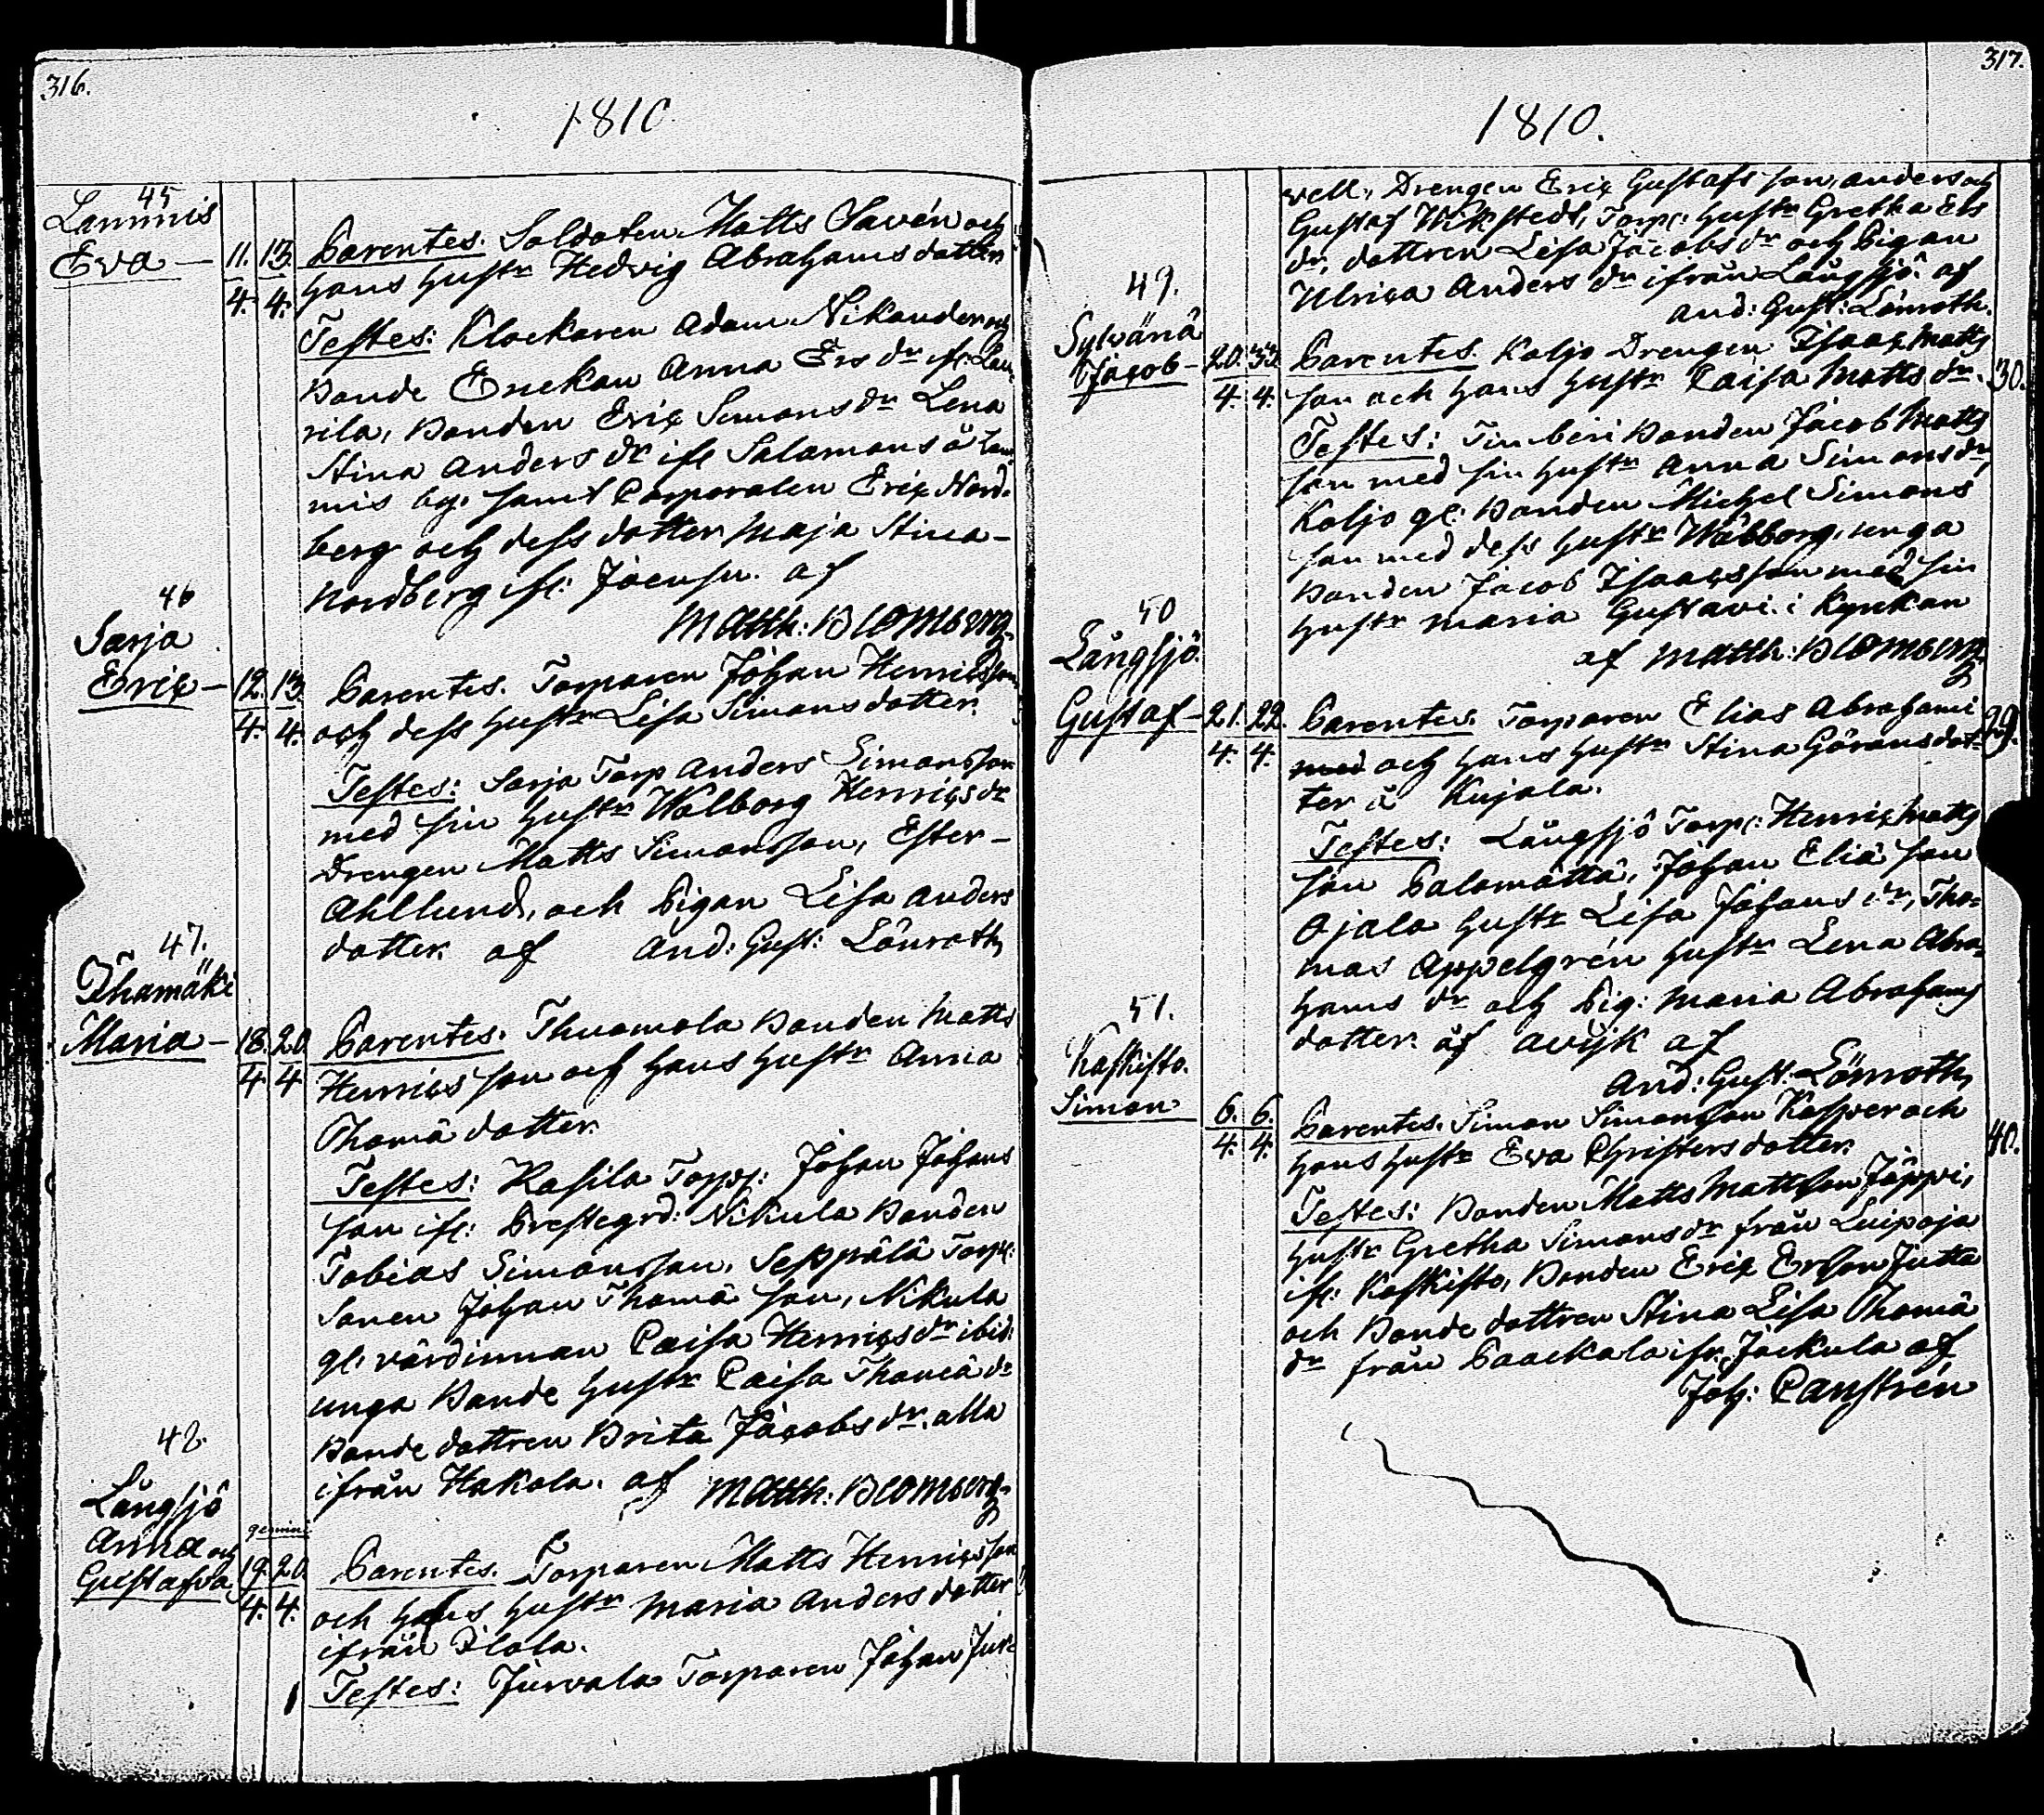 316.
1810
45
Lammis
Eva — 11. 13.
4. 4.
Parentes. Soldaten Matts Savén och
hans hustr Hedvig Abrahams dotter
Testes: Klockaren Adam Nikander och
Bonde Enckan Anna Ers dr ifr: Lau-
rila, Bonden Eric Simons dr Lena
Stina Anders dr ifr Salamons å Lam-
mis by. samt Corporalen Eric Nord-
berg och dess dotter Maja Stina
Nordberg ifr: Joensu. af
Matth: Blomberg
46
Sarja
Eric — 12. 13.
4. 4.
Parentes. Torparen Johan Henricsson
och dess hustr Lisa Simons dotter.
Testes: Sarja Torp Anders Simonsson
med sin hustr Walborg Henrics dr
Drengen Matts Simonsson, Ester
Ahllund, och Pigan Lisa Anders
dotter. af And: Gust: Lönroth
47.
Ihamäki
Maria — 18. 20.
4 4
Parentes. Thuomola Bonden Matts
Henrics son och hans hustr Anna
Thomä dotter.
Testes: Kasila Torp: Johan Johans
son ifr: Prestegrd: Nikula Bonden
Tobias Simonsson, Seppälä Torp:
Sonen Johan Thomä son, Nikula
gl. värdinnan Caisa Henrics dr ibid:
unga Bonde hustr Caisa Thomä dr
Bonde dottren Brita Jacobs dr. alla
ifrån Hakola. af Matth: Blomberg
48.
Långsjö
Anna och gemini
Gustafva 19. 20.
4. 4.
Parentes. Torparen Matts Henricsson
och hans hustr Maria Anders dotter
ifrån Pilola.
Testes: Jurvala Torparen Johan Jur-
317.
1810.
vell, Drengen Eric Gustafs son, Anders och
Gustaf Wikstedt, Torp: hustr Gretha Ers
dr, dottren Lisa Jacobs dr och Pigan
Ulrica Anders dr ifrån Långsjö. af
And: Gust: Lönroth.
49.
Sylvänä
Jacob — 20. 33.
4. 4.
Parentes. Koljo Drengen Isaac Matts
son och hans hustr Caisa Matts dr. 30.
Testes: Timberi Bonden Jacob Matts
son med sin hustr Anna Simons dr,
Koljo gl: Bonden Michel Simons
son med dess hustr Wabborg, unga
Bonden Jacob Isaacsson med sin
hustr Maria Gustavi. i Kynkan
af Matth: Blomberg
50
Långsjö.
Gustaf — 21. 22.
4. 4.
Parentes. Torparen Elias Abrahami 29.
med och hans hustr Stina Görans dot-
ter å Kujala.
Testes: Långsjö Torp: Henric Matts
son Palomätta, Johan Eliä son
Ojala hustr Lisa Johans dr, Tho-
mas Appelgrén hustr Lena Abra-
hams dr och Pig: Maria Abrahams
dotter. af Avijk af
And: Gust: Lönroth
51.
Kaskisto.
Simon 6. 6.
4. 4.
Parentes. Simon Simonsson Kasper och
hans hustr Eva Christers dotter. 40.
Testes: Bonden Matts Mattsson Jäppi,
hustr Gretha Simons dr från Luipaja
ifr: Kaskisto, Bonden Eric Ersson Jutta
och Bonde dottren Stina Lisa Thomä
dr från Paackala ifr. Jackula af
Joh: Canstrén